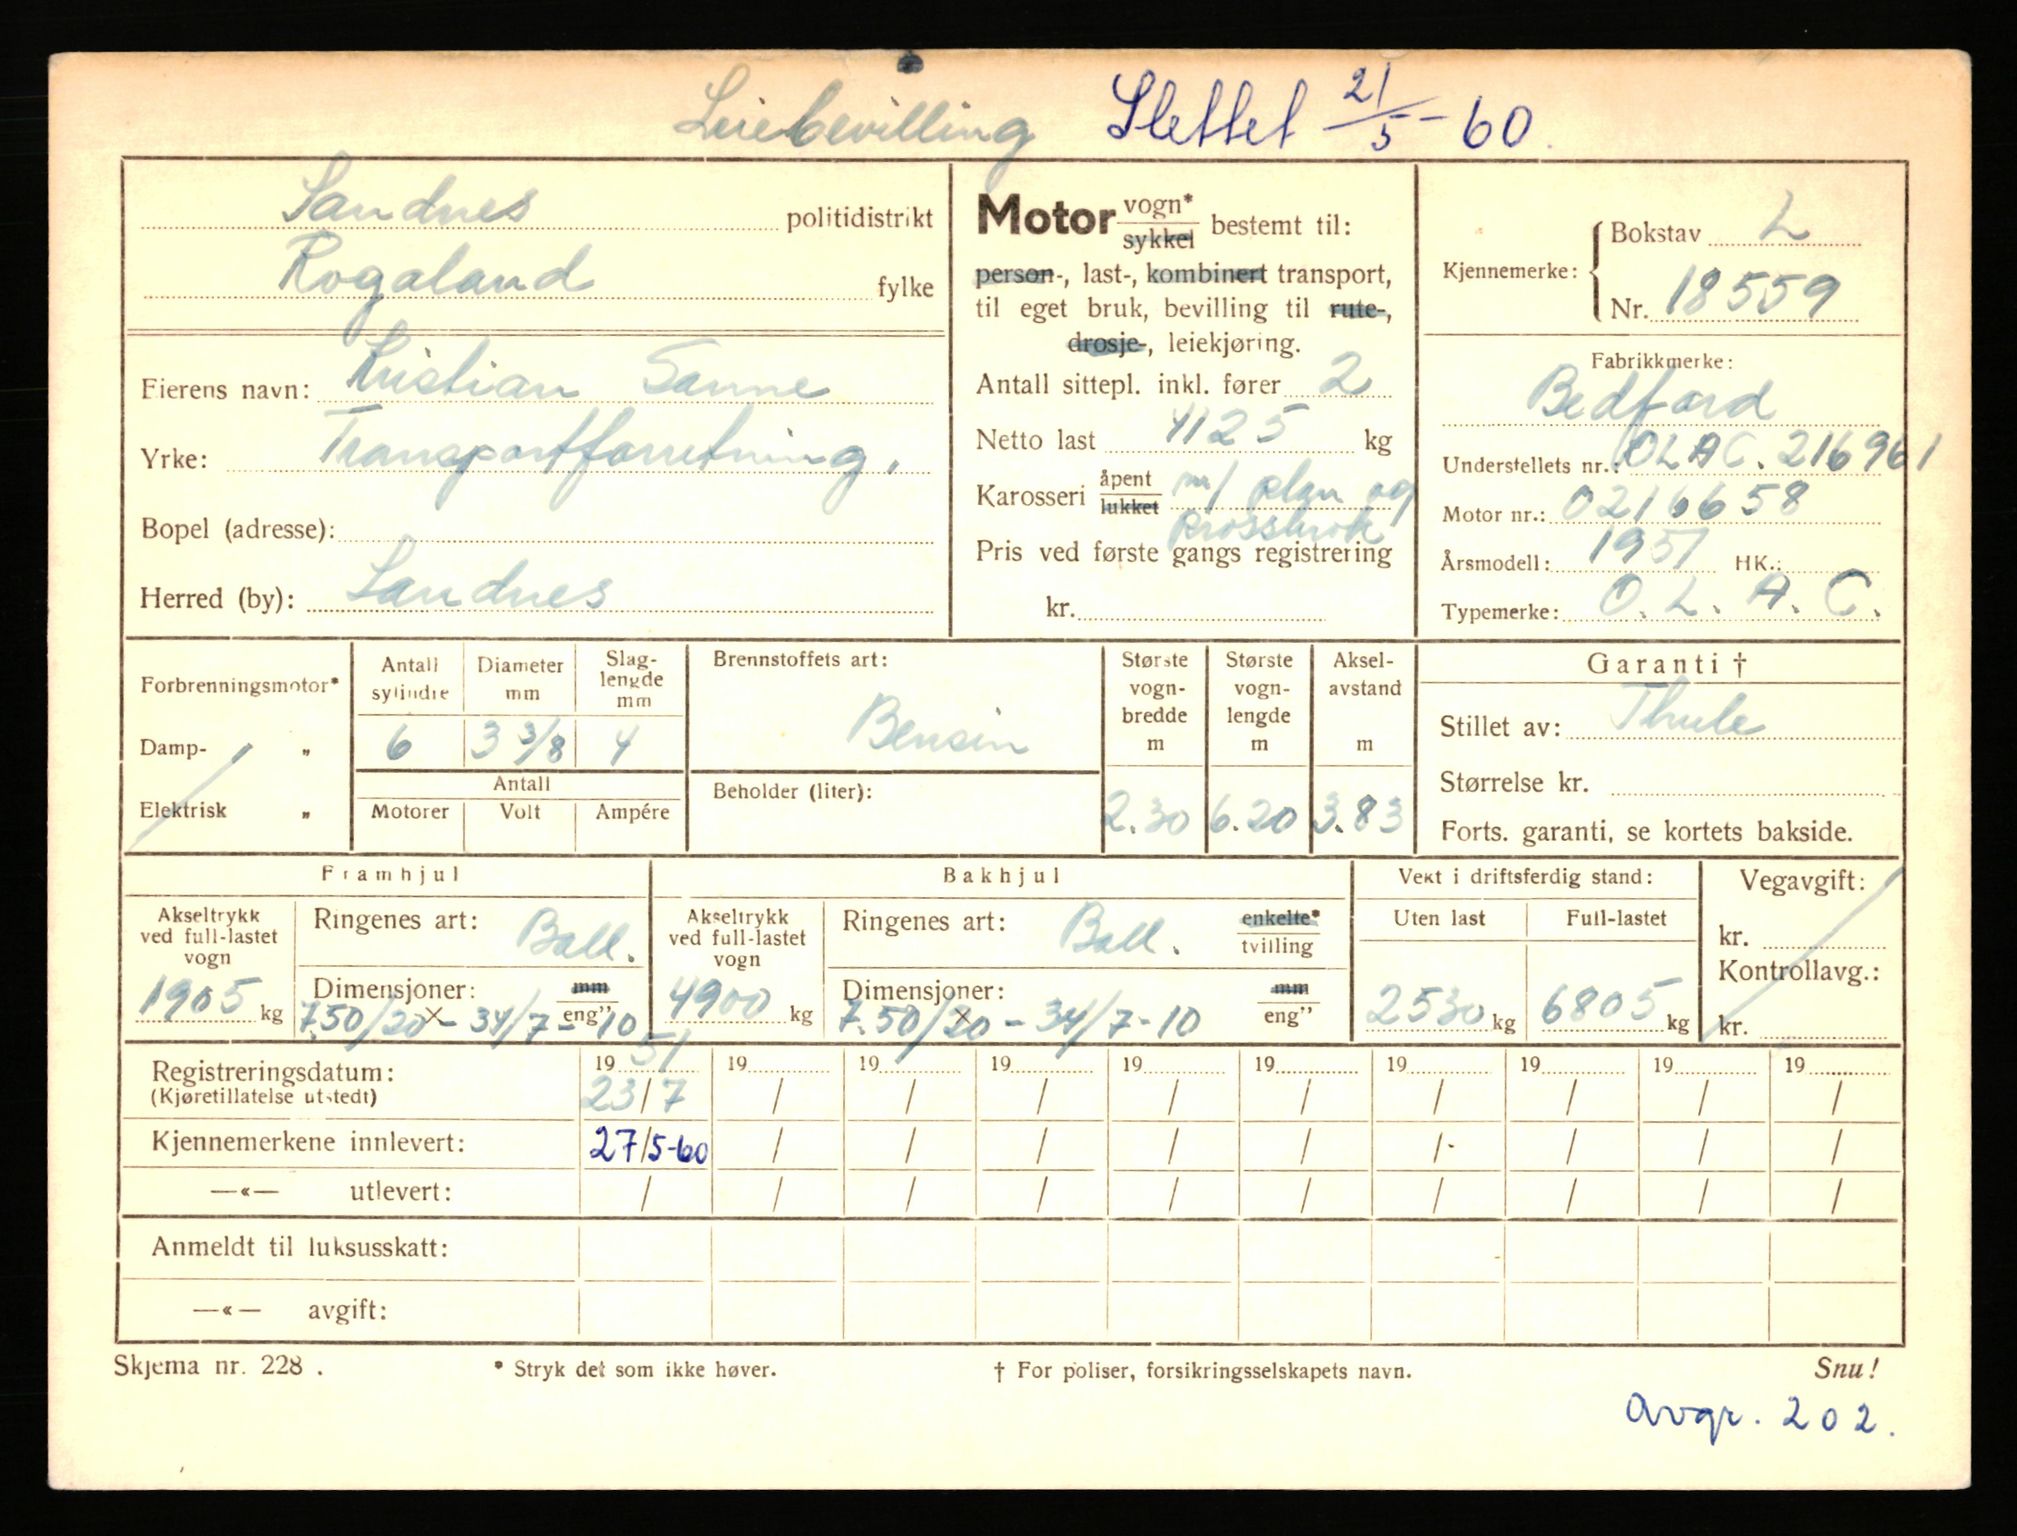 Leiebevilling Slettet 21/5-60.
Sandnes politidistrikt
Rogaland fylke
Eierens navn: Kristian Sanne
Yrke: Transportforretning.
Bopel (adresse):
Herred (by): Sandnes
Motor vogn* sykkel bestemt til:
person-, last-, kombinert transport,
til eget bruk, bevilling til rute-,
drosje-, leiekjøring.
Antall sittepl. inkl. fører 2
Netto last 4125 kg
Karosseri åpent lukket m/ plan og
Pris ved første gangs registrering
kr.
Kjennemerke: Bokstav L
Nr. 18559
Fabrikkmerke:
Bedford
Understellets nr.: OLAC. 216961
Motor nr.: 0216658
Årsmodell: 1951 HK.:
Typemerke: O. L. A. C.
Forbrenningsmotor*
Damp- „
Elektrisk „
Antall sylindre 6
Diameter mm 3 3/8
Slaglengde mm 4
Antall
Motorer Volt Ampére
Brennstoffets art:
Bensin
Beholder (liter):
Største vognbredde m 2.30
Største vognlengde m 6.20
Akselavstand m 3.83
Garanti †
Stillet av: Thule
Størrelse kr.
Forts. garanti, se kortets bakside.
Framhjul
Akseltrykk ved full-lastet vogn 1905 kg
Ringenes art: Ball.
Dimensjoner: mm eng”
7.50/20 x – 34/7 – 10
Bakhjul
Akseltrykk ved full-lastet vogn 4900 kg
Ringenes art: Ball. enkelte* tvilling
Dimensjoner: mm eng”
7.50/20 x – 34/7-10
Vekt i driftsferdig stand:
Uten last Full-lastet
2530 kg 6805 kg
Vegavgift:
kr.
Kontrollavg.:
kr.
Registreringsdatum: 1951 19 19 19 19 19 19 19 19 19
(Kjøretillatelse utstedt) 23/7 / / / / / / / / /
Kjennemerkene innlevert: 27/5-60 / / / / / / / / /
—«— utlevert: / / / / / / / / / /
Anmeldt til luksusskatt:
—«— avgift:
Skjema nr. 228 . * Stryk det som ikke høver. † For poliser, forsikringsselskapets navn. Snu!
avgr. 202.